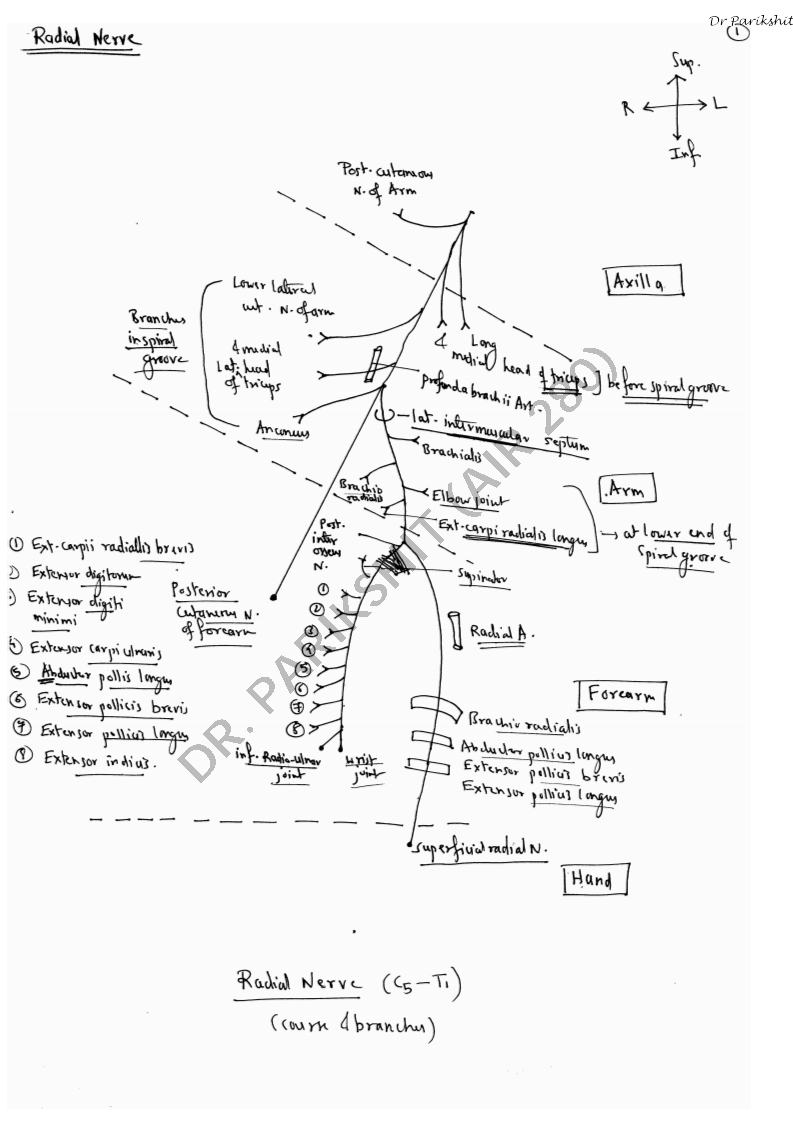 Dr Parikshit
1
Radial Nerve
Sup.
R
L
Inf
Post. cutaneous
N. of Arm
Axilla
Lower lateral
cut. N. of arm
Branches
in spiral
groove
& medial
Lat. head
of triceps
Anconeus
& Long
medial head of triceps ] before spiral groove
profunda brachii Art.
lat. intermuscular septum
Brachialis
Brachio
radialis
Arm
Elbow joint
Ext. carpi radialis longus
→ at lower end of
spiral groove
Post.
inter
osseus
N.
Supinator
① Ext. carpii radiallis brevis
Extensor digitorum
Extensor digiti
minimi
Extensor carpi ulnaris
⑤ Abductor pollis longus
⑥ Extensor pollicis brevis
⑦ Extensor pollius longus
⑧ Extensor indius.
Posterior
cutaneous N.
of forearm
①
②
③
④
⑤
⑥
⑦
⑧
Radial A.
Forearm
Brachio radialis
Abductor pollius longus
Extensor pollius brevis
Extensor pollius longus
inf. Radio-ulnar
joint
wrist
joint
superficial radial N.
Hand
Radial Nerve (C5-T1)
(course & branches)
DR. PARIKSHIT (AIR 280)